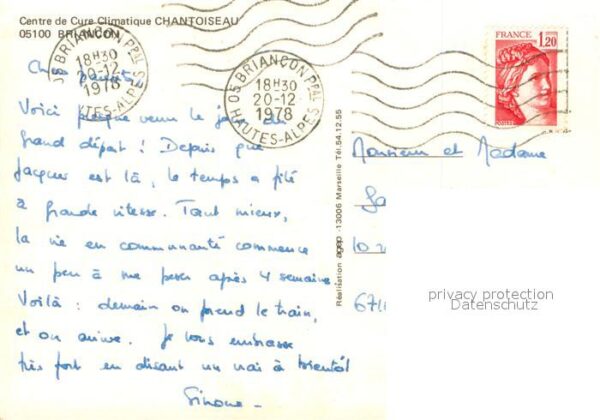 Centre de Cure Climatique CHANTOISEAU
05100 BRIANÇON
05 BRIANÇON PPAL
18H30
20-12
1978
HAUTES-ALPES
05 BRIANÇON PPAL
18H30
20-12
1978
HAUTES-ALPES
FRANCE
1,20
Chers parents,
Voici presque venu le jour du
grand départ ! Depuis que
Jacques est là, le temps a filé
à grande vitesse. Tant mieux,
la vie en communauté commence
un peu à me peser après 4 semaines.
Voilà : demain on prend le train,
et on arrive. Je vous embrasse
très fort en disant un vrai à bientôt
Simone -
Réalisation agep -13006 Marseille Tél.54.12.55
Monsieur et Madame
10
671
privacy protection
Datenschutz